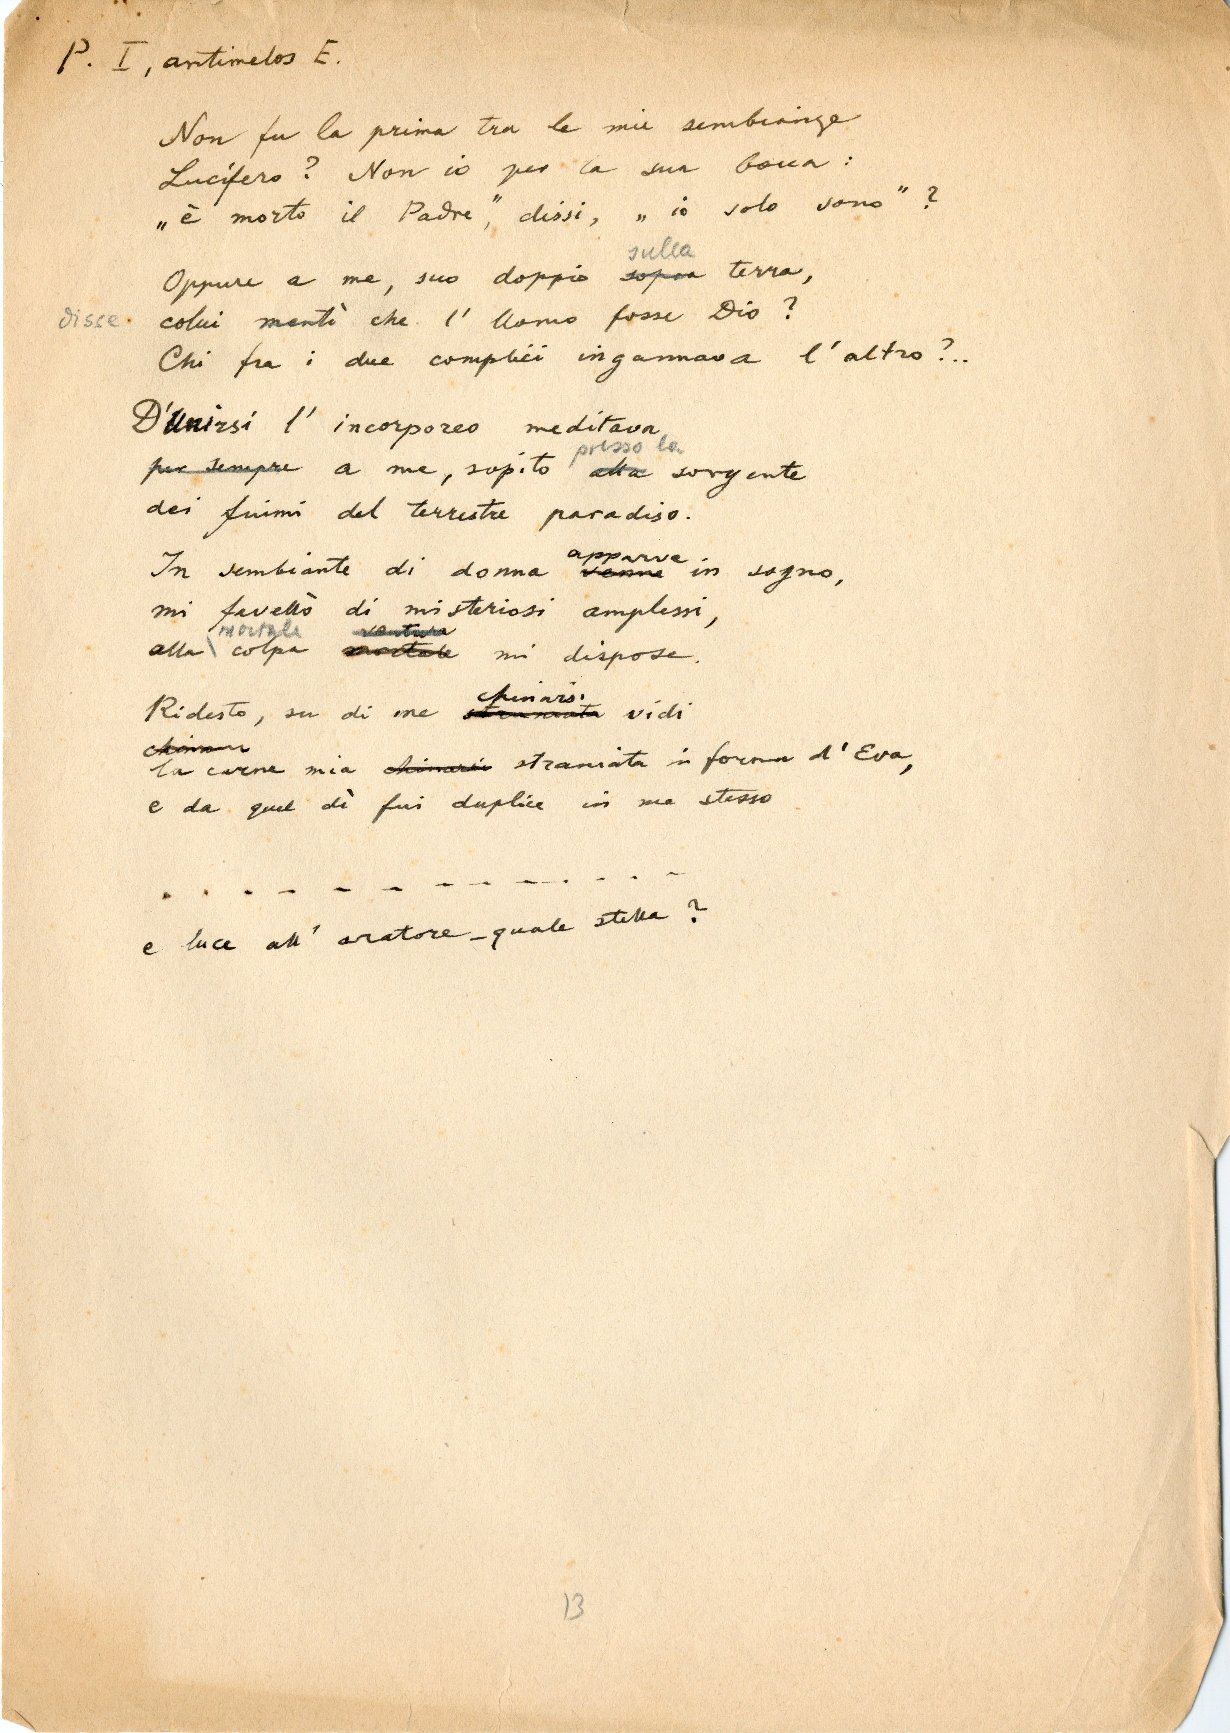 P. I, antimelos E.
Non fu la prima tra le mie sembianze
Lucifero? Non io per la sua bocca:
„è morto il Padre”, dissi, „io solo sono”?
sulla
Oppure a me, suo doppio sopra terra,
disse colui mentì che l'Uomo fosse Dio?
Chi fra i due complici ingannava l'altro?..
D'Unirsi l'incorporeo meditava
presso la
per sempre a me, sopito alla sorgente
dei fiumi del terrestre paradiso.
apparve
In sembiante di donna venne in sogno,
mi favellò di misteriosi amplessi,
mortale ventura
alla colpa mortale mi dispose.
chinarsi
Ridesto, su di me straniata vidi
la carne mia chinarsi straniata in forma d'Eva,
e da quel dì fui duplice in me stesso
e luce all'oratore – quale stella?
13